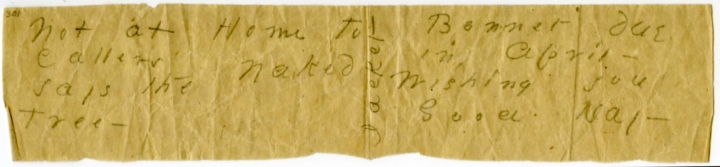 301
Not at Home to
Callers
Says the Naked
Tree –
Jacket
Bonnet due
in April –
Wishing you
Good Day –